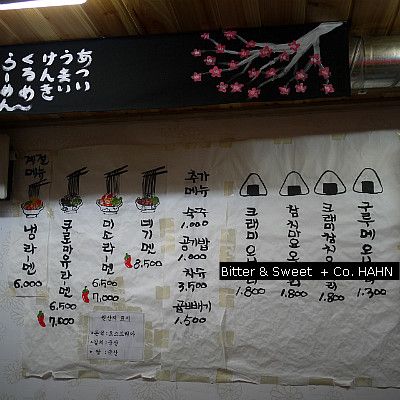 あつい
うまい
げんき
くるめ
らーめん
계절
메뉴
냉라멘
6.000
쿠로마유라멘
7,000
미소라멘
6.500
7,000
8,500
추가
메뉴
숙주
1.000
공기밥
1.000
차슈
3.500
곱빼기
1.500
크래미
1.800
참치마요
1.800
크래미참치
1.800
구루메
1.300
원산지 표기
• 쌀 : 국산
Bitter & Sweet + Co. HAHN